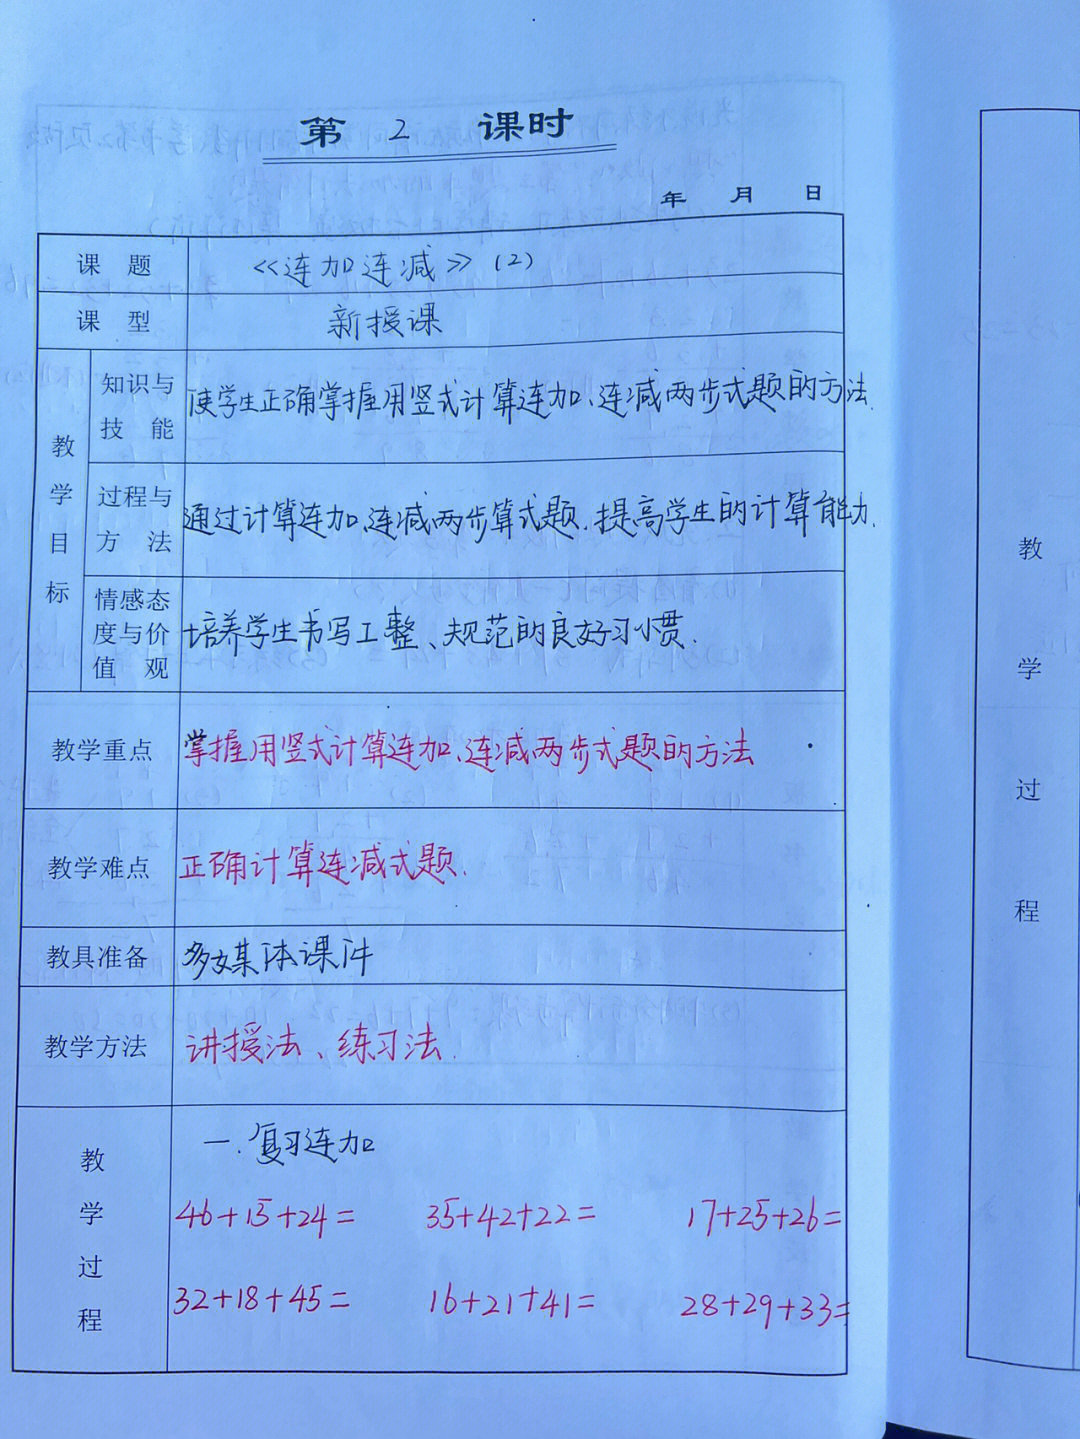 第 2 课时
年 月 日
课 题 《连加连减》(2)
课 型 新授课
教学目标
知识与技 能 使学生正确掌握用竖式计算连加、连减两步式题的方法.
过程与方 法 通过计算连加、连减两步算式题.提高学生的计算能力.
情感态度与价值 观 培养学生书写工整、规范的良好习惯.
教学重点 掌握用竖式计算连加、连减两步式题的方法
教学难点 正确计算连减式题.
教具准备 多媒体课件
教学方法 讲授法、练习法.
教学过程
一.复习连加
46+15+24= 35+42+22= 17+25+26=
32+18+45= 16+21+41= 28+29+33=
教
学
过
程